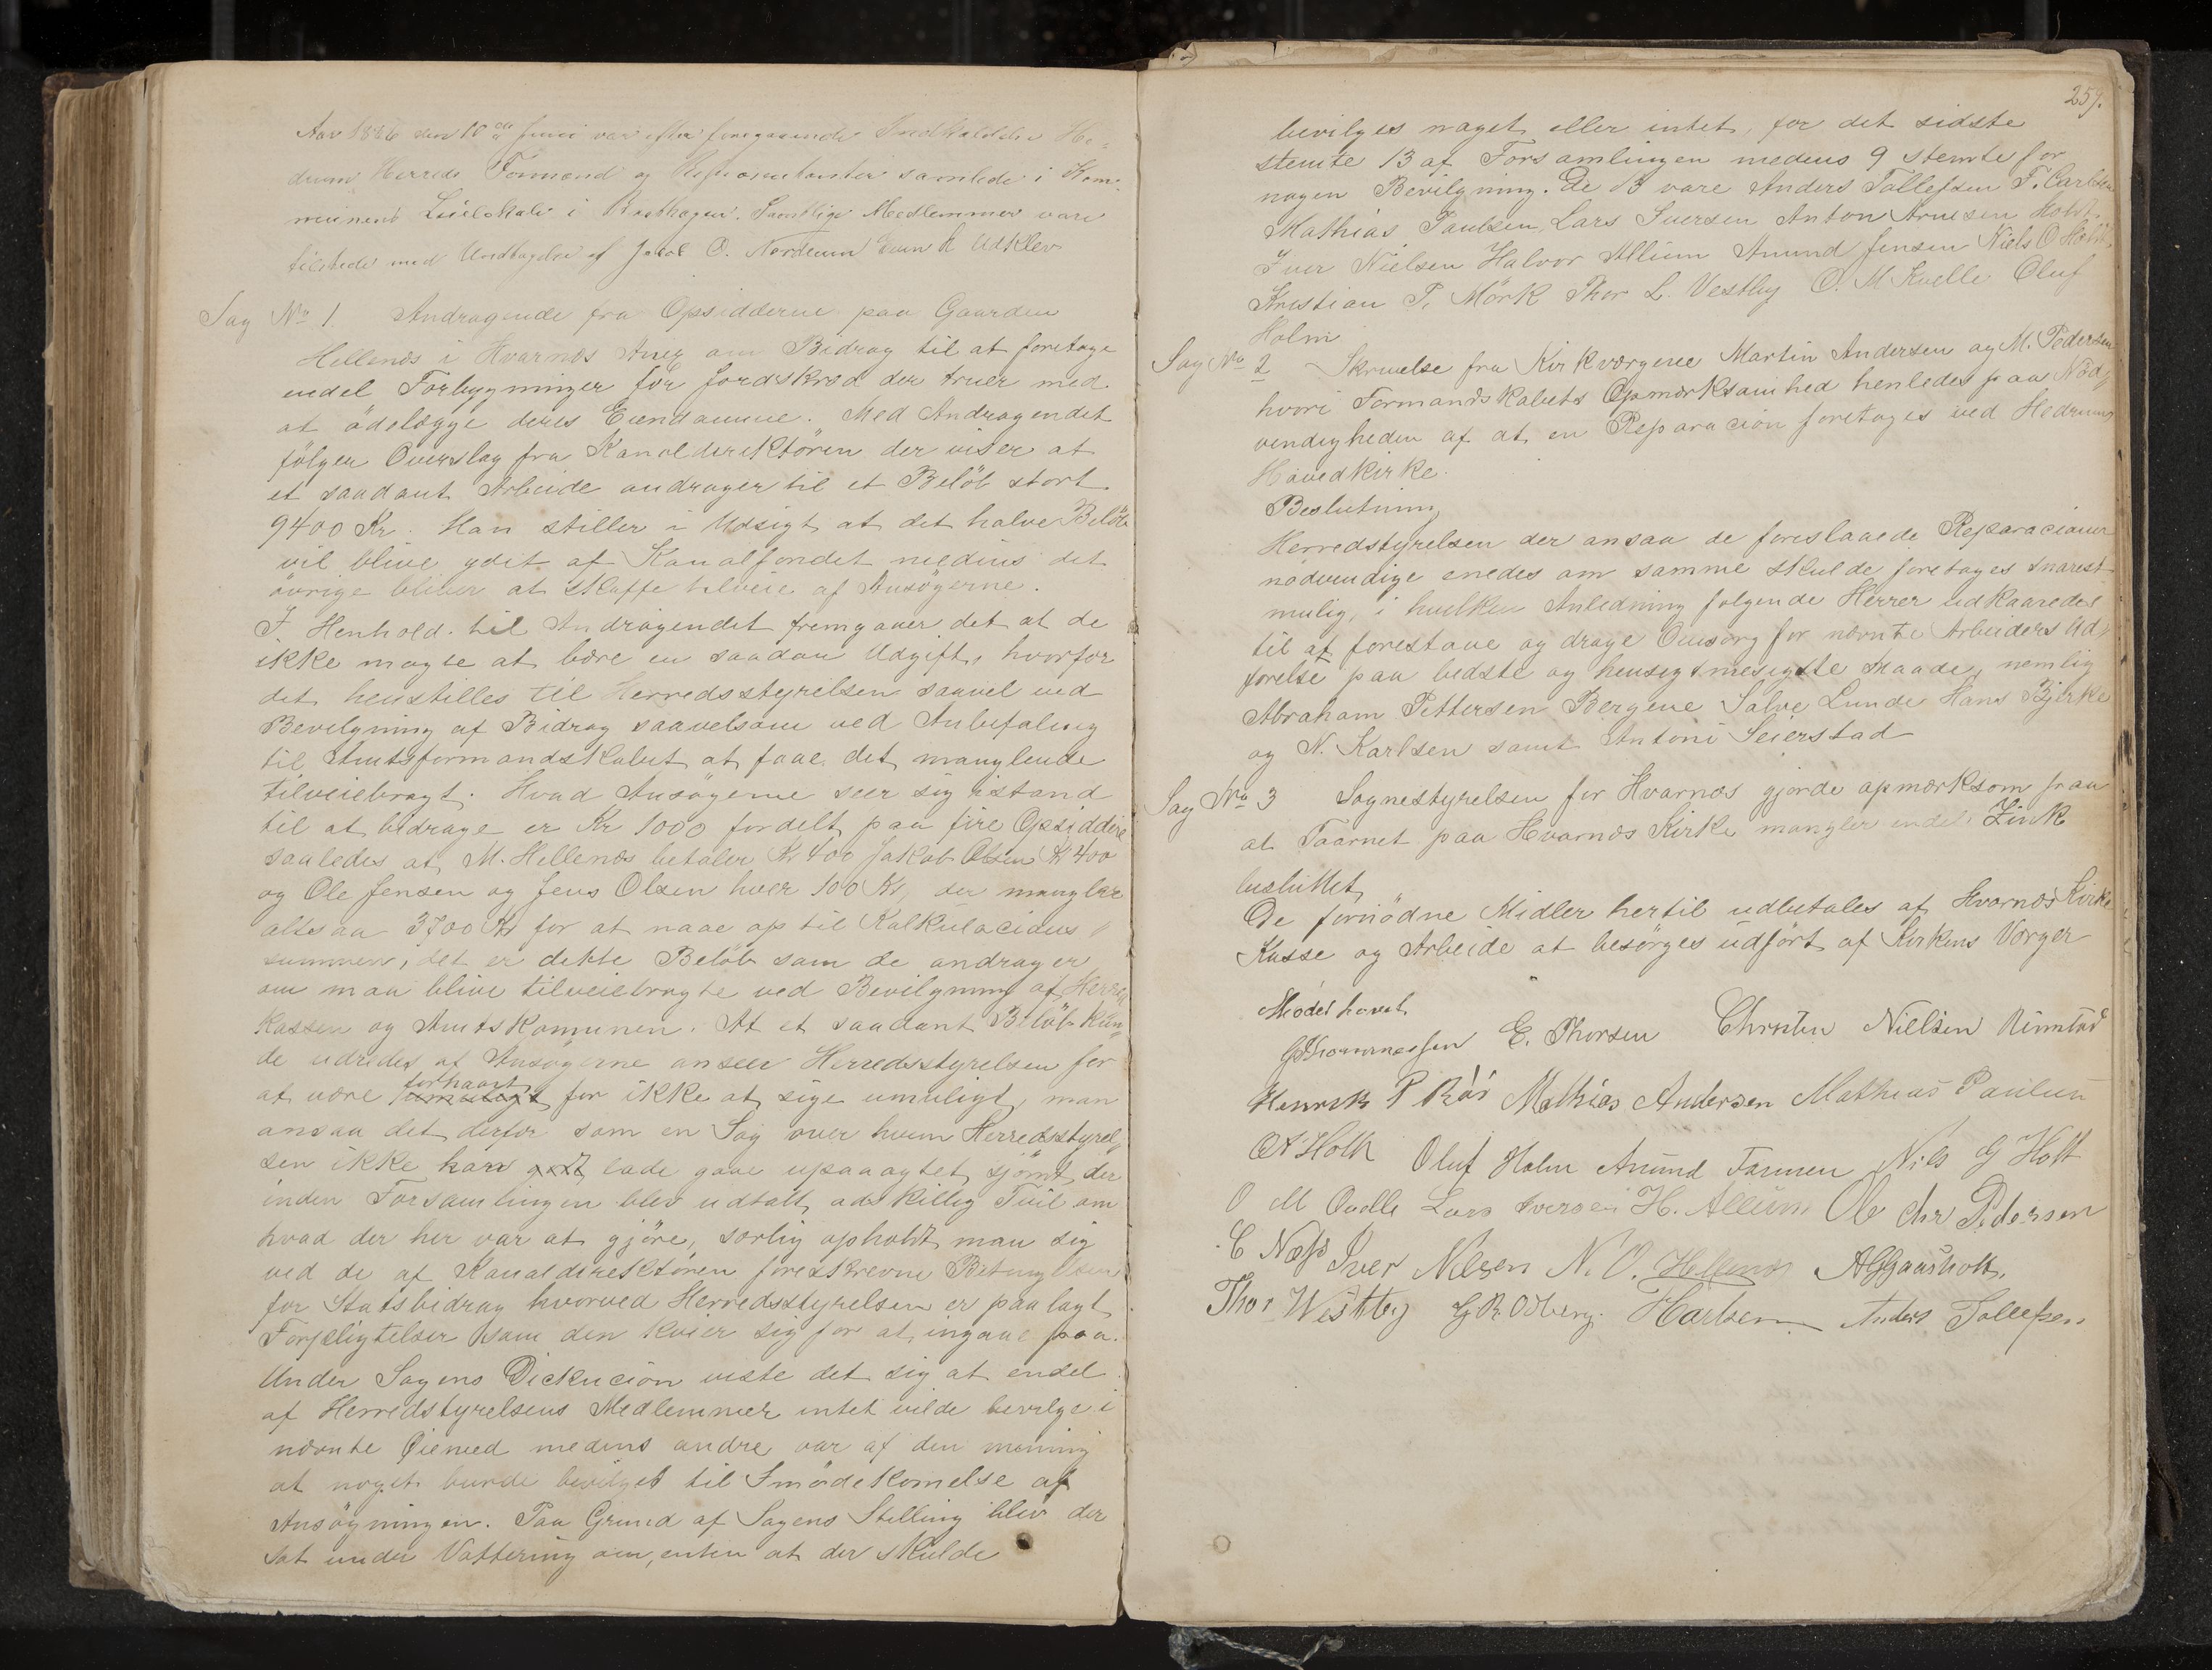 Aar 1886 den 10de Juni var efter foregaaende Indkaldelse He=
drum Herreds Formænd og Repræsentanter samlede i Kom=
munens Leielokale i Samtlige Medlemmer vare
tilstede med Undtagelse af Jakob O. Nordrum Even A Udklev
Sag No 1. Andragende fra Opsidderne paa Gaarden
Hellenæs i Hvarnes Anex om Bidrag til at foretage
endel Forbygninger for Jordskred der truer med
at ödelægge deres Eiendomme. Med Andragendet
fölger Overslag fra Kanaldirektören der viser at
et saadant Arbeide andrager til et Belöb stort
9400 Kr. Han stiller i Udsigt at det halve Belöb
vil blive ydet af Kanalfondet medens det
övrige bliver at skaffe tilveie af Ansögerne.
I Henhold til Andragendet fremgaaer det at de
ikke magte at bære en saadan Udgift, hvorfor
det henstilles til Herredsstyrelsen saavel ved
Bevilgning af Bidrag saavelsom ved Anbefaling
til Amtsformandskabet at faae det manglende
tilveiebragt. Hvad Ansögerne seer sig istand
til at bidrage er Kr 1000 fordelt paa fire Opsiddere
saaledes at M. Hellenæs betaler Kr 400 Jakob Olsen Kr 400
og Ole Jensen og Jens Olsen hver 100 Kr, der mangler
altsaa 3700 Kr for at naae op til Kalkulacions=
summen, det er dette Belöb som de andrager
om maa blive tilveiebragte ved Bevilgning af Herreds
kassen og Amtskomunen. At et saadant Belöb kun=
de udredes af Ansögerne anseer Herredsstyrelsen for
at være forhaart for ikke at sige umuligt, man
ansaa det derfor som en Sag over hvem Herredsstyrel=
sen ikke kan lade gaae upaaagtet, sjönt der
inden Forsamlingen blev udtalt adskillig Tvil om
hvad der her var at gjöre, særlig opholdt man sig
ved de af Kanaldirektören foreskrevne Betingelser
for Statsbidrag hvorved Herredsstyrelsen er paalagt
Forpligtelser som den kvier sig for at ingaae paa.
Under Sagens Dickucion viste det sig at endel
af Herredstyrelsens Medlemmer intet vilde bevilge i
nævnte Öiemed medens andre var af den mening
at noget burde bevilges til Imödekomelse af
Ansögningen. Paa Grund af Sagens Stilling blev der
sat under Vottering om, enten at der skulde
259.
bevilges noget eller intet, for det sidste
stemte 13 af Forsamlingen medens 9 stemte for
nogen Bevilgning. De 13 vare Anders Tollefsen F. Carlsen
Mathias Paulsen, Lars Iversen Anton Arnesen Holt.
Iver Nielsen Halvor Allum Anund Jensen Niels O Holt
Kristian P. Mörk Thor L. Vestby O. M Kvelle Oluf
Holm
Sag No 2 Skrivelse fra Kirkværgene Martin Andersen og M. Pedersen
hvori Formandskabets Opmærksamhed henledes paa Nöd=
vendigheden af at en Reparacion foretages ved Hedrums
Hovedkirke.
Beslutning
Herredstyrelsen der ansaa de foreslaaede Reparacioner
nödvendige enedes om samme skulde foretages snarest
mulig, i hvilken Anledning fölgende Herrer udkaaredes
til at forestaae og drage Omsorg for nævnte Arbeiders Ud=
förelse paa bedste og hensigtmesigste Maade, nemlig
Abraham Pettersen Bergene Salve Lunde Hans Bjerke
og N. Karlsen samt Antoni Seierstad
Sag No 3 Sognestyrelsen for Hvarnes gjorde opmærksom paa
at Taarnet paa Hvarnes Kirke mangler endel Zink
besluttet
De fornödne Midler hertil udbetales af Hvarnes Kirke
Kasse og Arbeide at besörges udfört af Kirkens Værger
Mödet hævet
E. Thorsen Christen Nielsen
Henrik P Mathias Andersen Mathias Paulsen
A Holt Oluf Holm Anund Jansen Nils O Holt
O M Qvelle Lars Iversen H. Allum Ole Chr Pedersen
C Næss Iver Nilsen N. O. Hellenes A Gaasholt.
Thor Westby G R Odberg. Anders Tollefsen